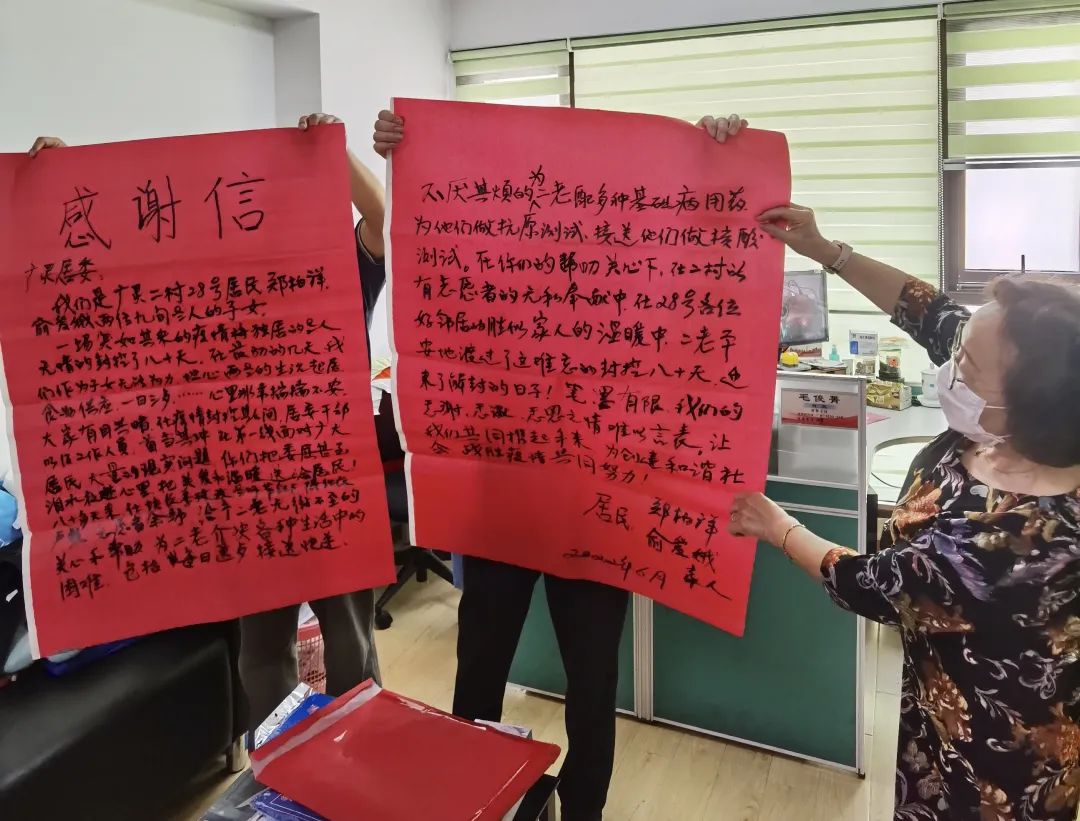 感谢信
广灵居委:
我们是广灵二村28号居民郑柏祥,
俞爱娥两位九旬老人的子女。
一场突如其来的疫情将独居的老人
无情的封控了八十天,在最初的几天,我
们作为子女无法为力,担心两老的生活起居
食物供应,一日三岁……心里非常揣揣不安。
大家有同共鸣,在疫情封控期间,居委干部
以位工作人员,首当其冲,在第一线面对广大
居民大量的现实问题,你们把委屈甚至
泪水
心里,把关爱和温暖送给居民!
八十天来
给予二老无微不至的
关心和帮助,为二老解决各种生活中的
困难,包括每日
接送快递,
不厌其烦的为二老配多种基础病用药
为他们做抗原测试,接送他们做核酸
测试。在你们的帮助关心下,在二村以
有志愿者的无私奉献中,在28号各位
好邻居的胜似家人的温暖中,二老平
安地渡过了这难忘的封控八十天,迎
来了解封的日子!笔墨有限,我们的
感谢,感激,感恩之情难以言表。让
我们共同携起手来,为创建和谐社
会,战胜疫情共同努力!
居民 郑柏祥
俞爱娥
2022年6月 家人
毛俊菁